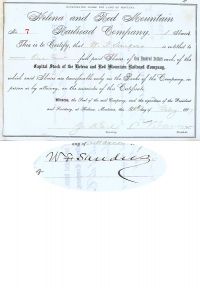 INCORPORATED UNDER THE LAWS OF MONTANA.
Helena and Red Mountain
Railroad Company.
No. 7
Shares
This is to Certify, that W. F. Sanders is entitled to
full paid Shares of One Hundred Dollars each, of the
Capital Stock of the Helena and Red Mountain Railroad Company,
which said Shares are transferable only on the Books of the Company, in
person or by attorney, on the surrender of this Certificate.
Witness, the Seal of the said Company, and the signatures of the President
and Secretary, at Helena, Montana, the day of
day of
W F Sanders